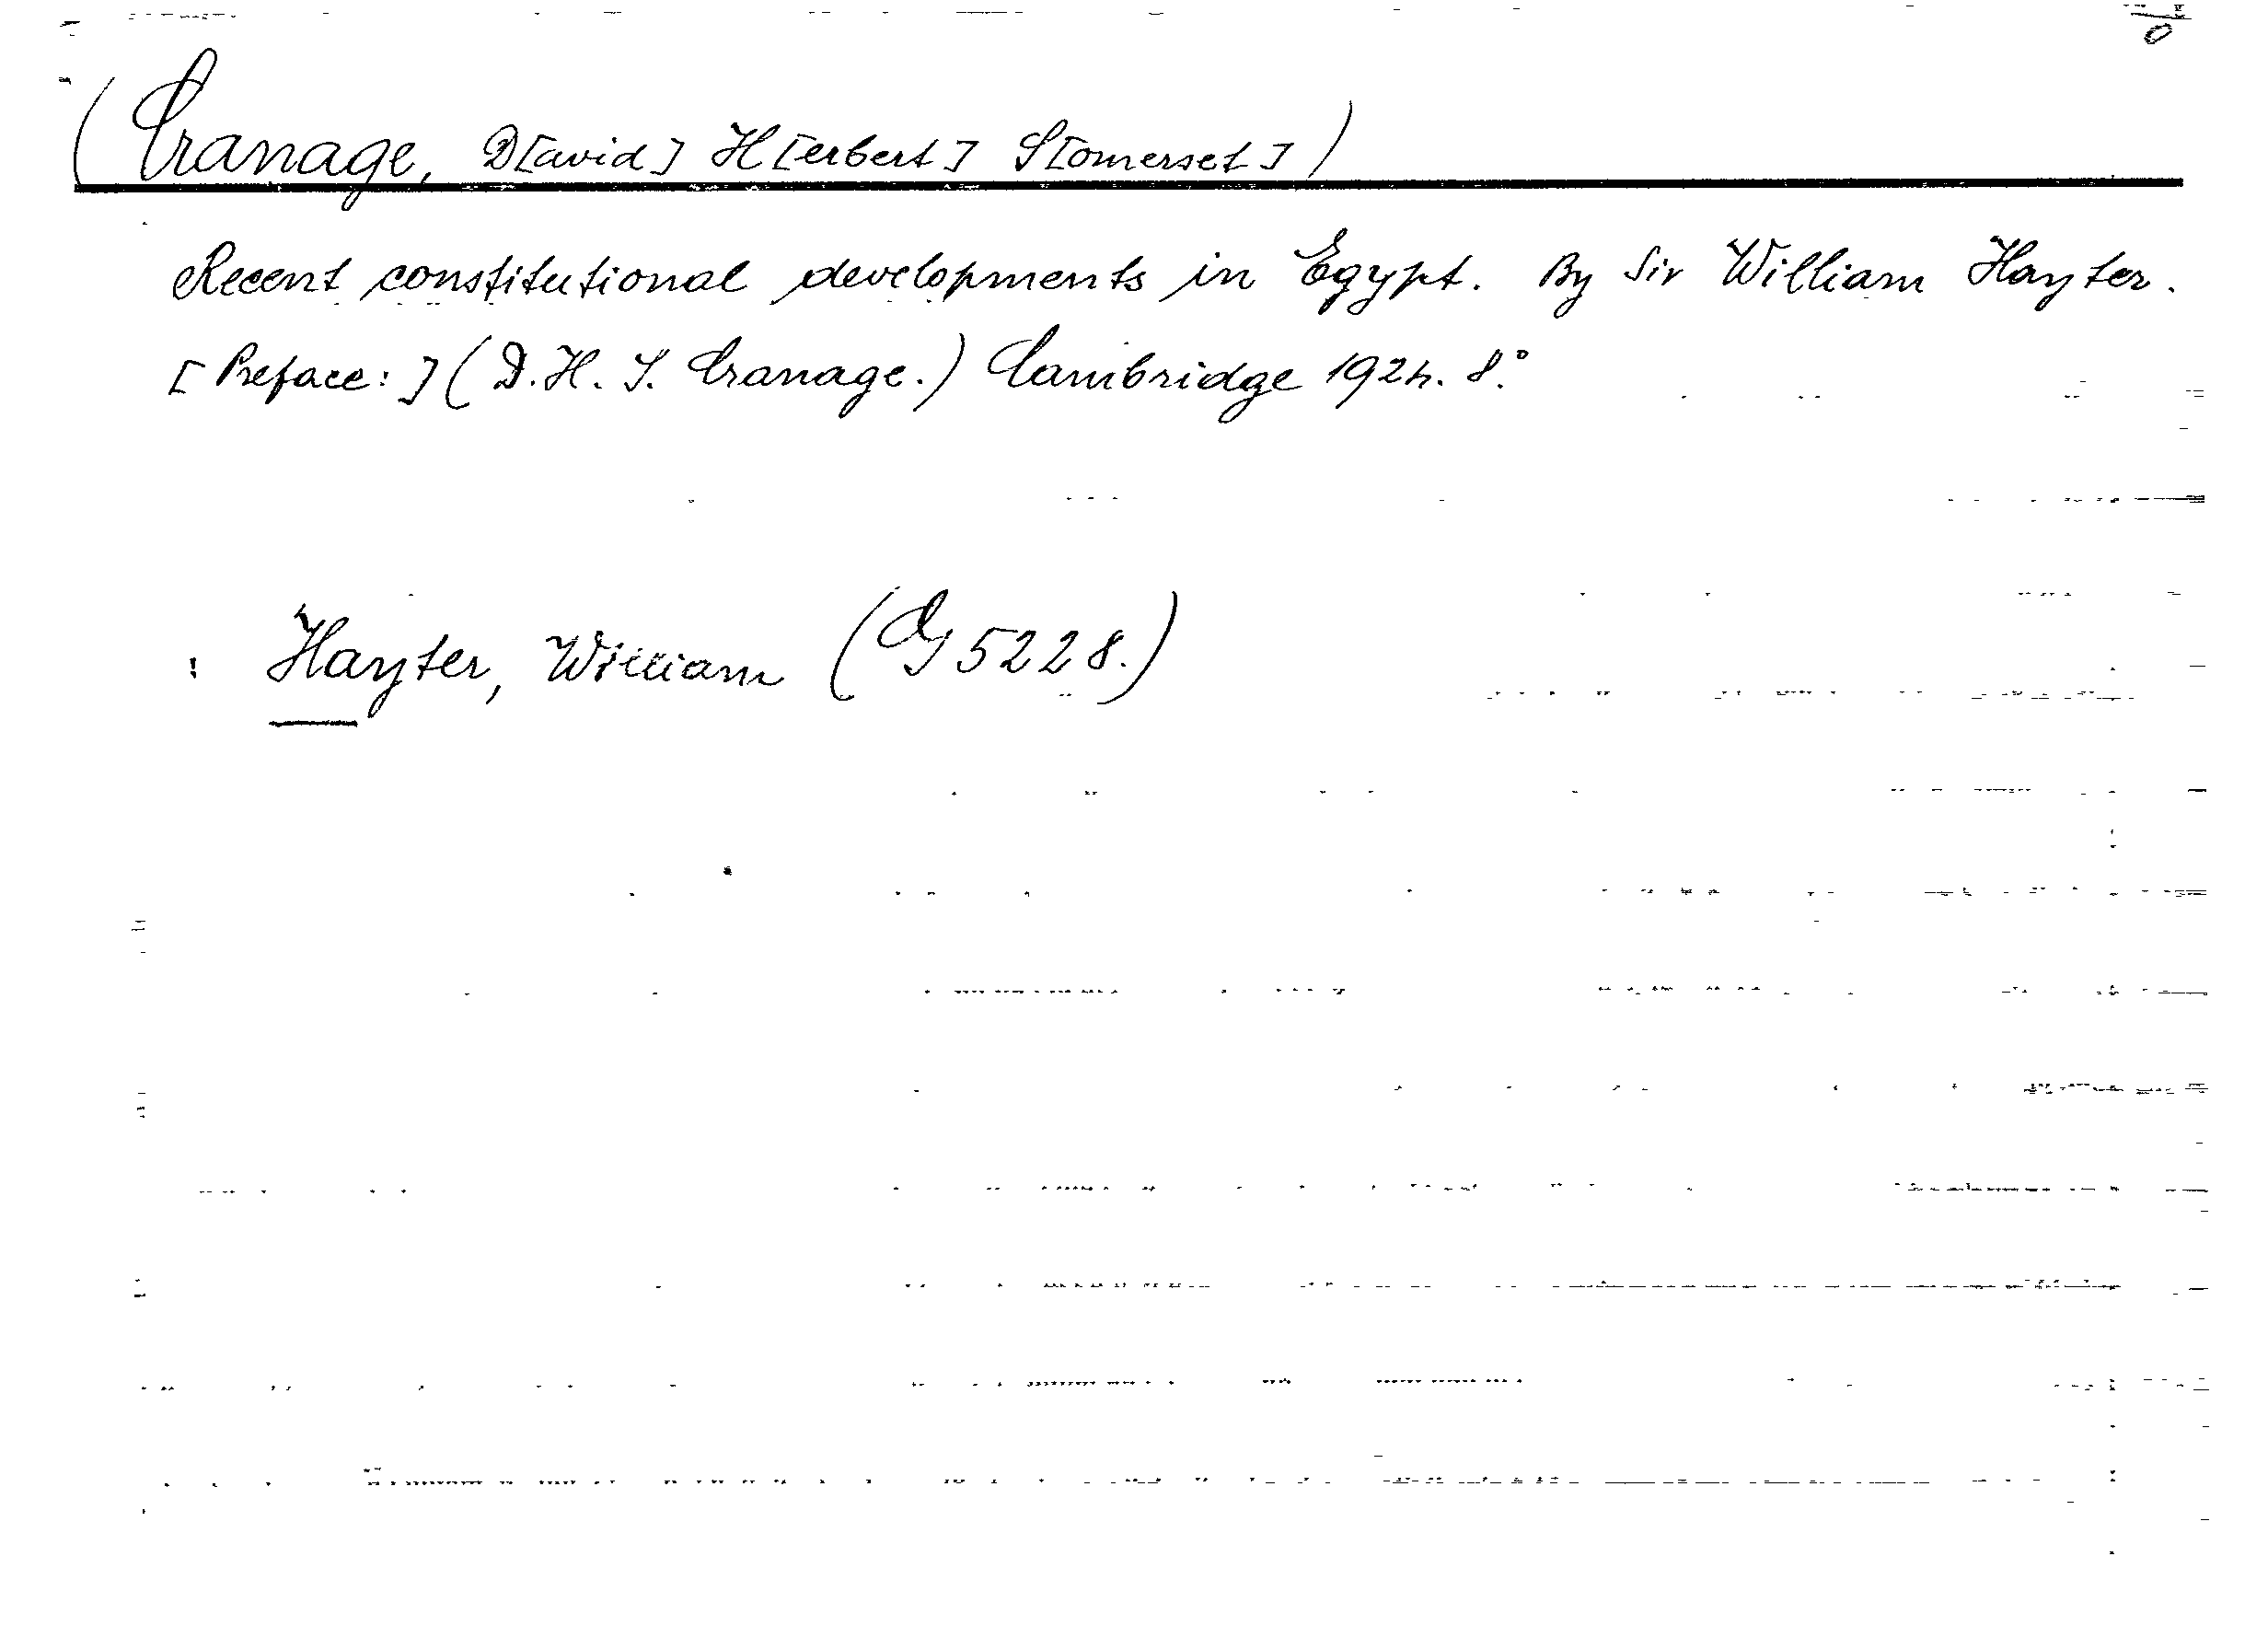 (Cranage, D[avid] H[erbert] S[omerset])
Recent constitutional developments in Egypt. By Sir William Hayter.
[Preface:] (D. H. S. Cranage.) Cambridge 1924. 8°.
: Hayter, William (Og 5228.)